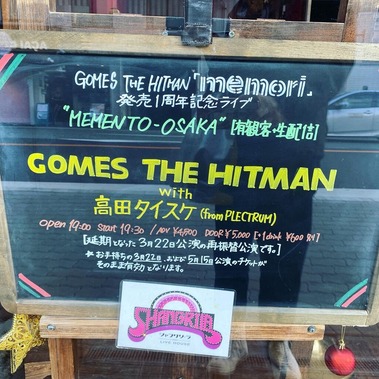 GOMES THE HITMAN「memori」
発売1周年記念ライブ
"MEMENTO-OSAKA"[有観客+生配信]
GOMES THE HITMAN
with
高田タイスケ(from PLECTRUM)
open 19:00 start 19:30 / ADV ¥4,500 DOOR ¥5,000 [+1drink ¥600 別]
[延期となった3月22日公演の再振替公演です。]
お手持ちの3月22日、および5月15日公演のチケットが
そのまま有効となります。
SHANGRILA
シャングリラ
LIVE HOUSE